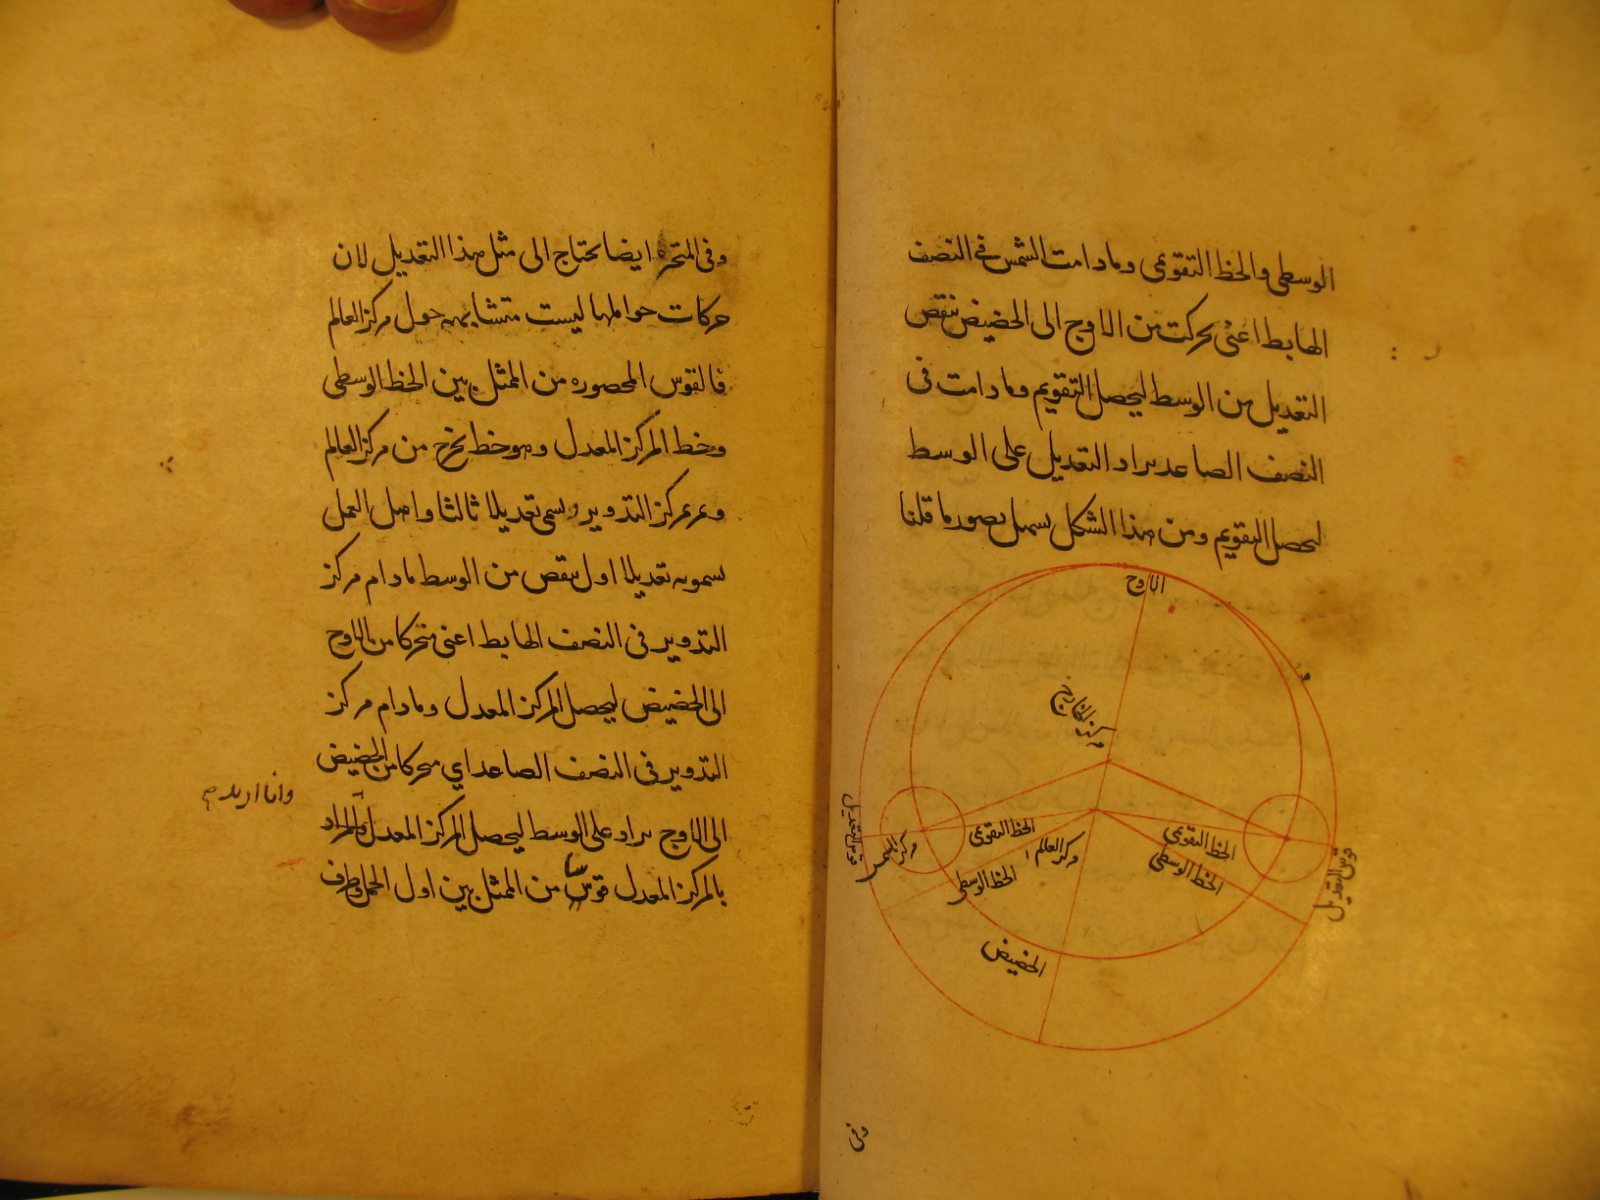 الوسطى والخط التقويمى وما دامت الشمس فى النصف
الهابط اعنى تحركت من الاوج الى الحضيض ينقص
التعديل من الوسط ليحصل التقويم وما دامت فى
النصف الصاعد يزاد التعديل على الوسط
ليحصل التقويم ومن هذا الشكل يسهل تصور ما قلنا
الاوج
مركز الخارج
الخط التقويمى
الخط الوسطى
قوس التعديل
مركز العالم
الخط التقويمى
الخط الوسطى
مركز الشمس
قوس التعديل
الحضيض
وفى
وفى المتحيره ايضا يحتاج الى مثل هذا التعديل لان
حركات حواملها ليست متشابهه حول مركز العالم
فالقوس المحصوره من الممثل بين الخط الوسطى
وخط المركز المعدل وهو خط يخرج من مركز العالم
ويمر بمركز التدوير ويسمى تعديلا ثالثا واهل العمل
يسمونه تعديلا اول ينقص من الوسط ما دام مركز
التدوير فى النصف الهابط اعنى متحركا من الاوج
الى الحضيض ليحصل المركز المعدل وما دام مركز
التدوير فى النصف الصاعد اي متحركا من الحضيض
الى الاوج يزاد على الوسط ليحصل المركز المعدل والمراد
بالمركز المعدل قوس من الممثل بين اول الحمل وطرف